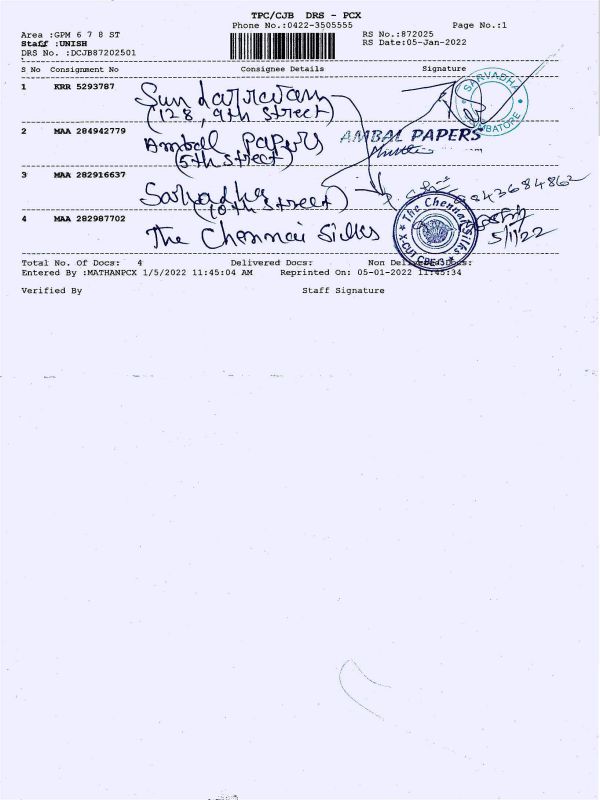 TPC/CJB DRS - PCX
Phone No.:0422-3505555 Page No.:1
Area :GPM 6 7 8 ST RS No.:872025
Staff :UNISH RS Date:05-Jan-2022
DRS No. :DCJB87202501
S No Consignment No Consignee Details Signature
1 KRR 5293787 Sundarravam SARVADHA
(128, 9th street) COIMBATORE
2 MAA 284942779 Ambal Papers AMBAL PAPERS
(5th street)
3 MAA 282916637 Sarvadha 9843684862
(10th street)
4 MAA 282987702 The Chennai Silks The Chennai Silks
X-CUT CBE-3
5/1/22
Total No. Of Docs: 4 Delivered Docs: Non Delivered Docs:
Entered By :MATHANPCX 1/5/2022 11:45:04 AM Reprinted On: 05-01-2022 11:45:34
Verified By Staff Signature